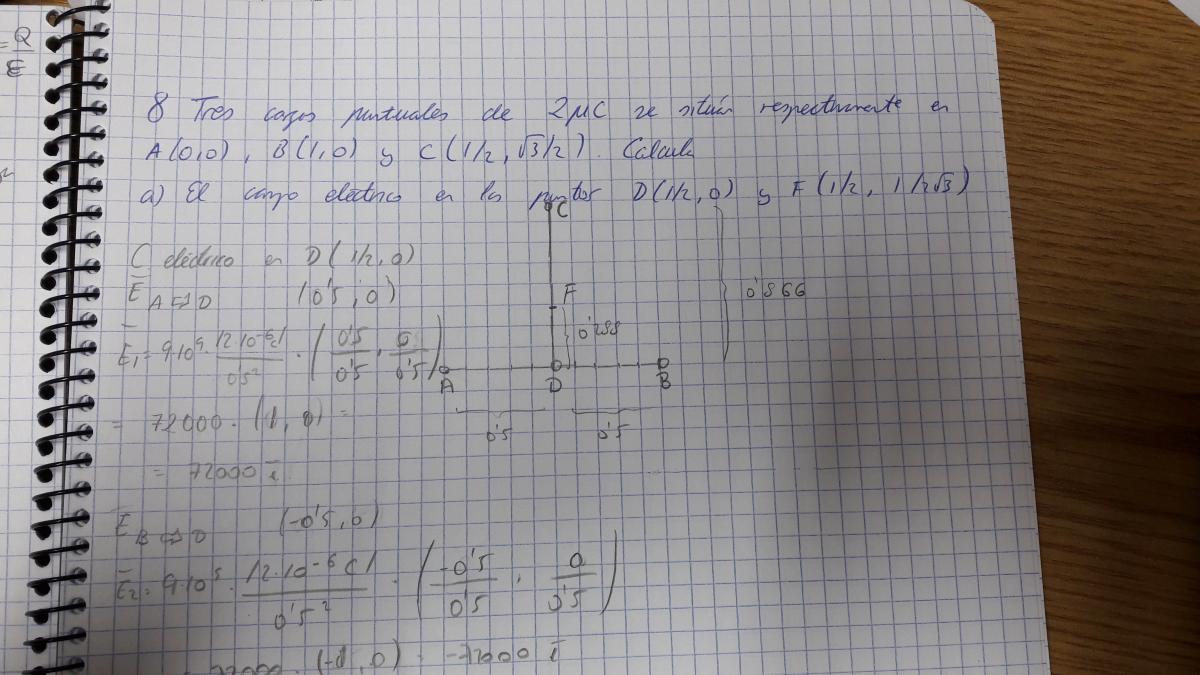 = Q
E
8 Tres cargas puntuales de 2μC se sitúan respectivamente en
A(0,0), B(1,0) y C(1/2, √3/2). Calcula
a) El campo eléctrico en los puntos D(1/2, 0) y F(1/2, 1/2√3)
C
C eléctrico en D(1/2,0)
E A⇒D (0'5, 0)
F
0'866
0'288
E₁ = 9·10⁹ · |2·10⁻⁶C| / 0'5² · (0'5/0'5, 0/0'5)
A D B
0'5 0'5
= 72000 · (1, 0) =
= 72000 i
E B⇒D (-0'5, 0)
E₂ = 9·10⁹ · |2·10⁻⁶C| / 0'5² · (-0'5/0'5, 0/0'5)
72000 · (-1, 0) = -72000 i